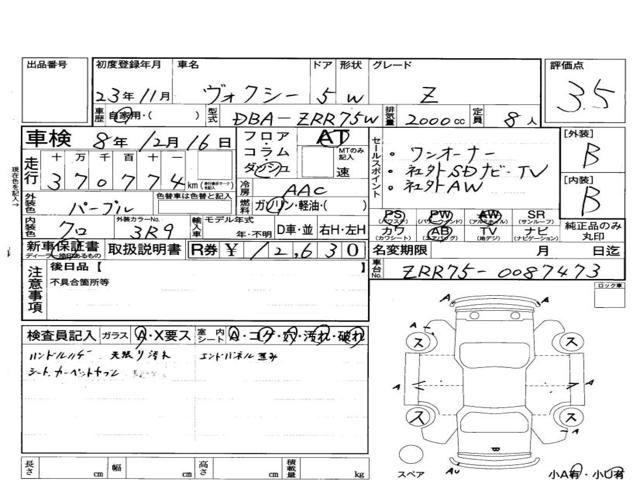 出品番号
初度登録年月 車名 ドア 形状 グレード 評価点
23年11月 ヴォクシー 5 W Z 3.5
車歴 自家用・( ) 型式 DBA-ZRR75W 排気量 2000cc 定員 8人
車検 8年12月16日
フロア・コラム・ダッシュ AT MTのみ記入 速
セールスポイント
・ワンオーナー
・社外SDナビ・TV
・社外AW
[外装] B
[内装] B
現在色を記入→
走行 十万千百十一 370774km
冷房 AAC
燃料 ガソリン・軽油・( )
外装色 パープル 色替車は色替前( )
内装色 クロ 外装カラーNo. 3R9 輸入車 モデル年式 年・不明 D車・並 右H・左H
PS (パワステ) PW (パワーウィンド) AW (アルミホイル) SR (サンルーフ)
カワ (カワシート) AB (エアバッグ) TV (地デジ) ナビ (ナビゲーション)
純正品のみ丸印
新車保証書 取扱説明書 R券 ¥12,630
名変期限 月 日迄
車台No. ZRR75-0087473
注意事項 後日品[ ]
不具合箇所等
ロック車
検査員記入 ガラス A・X要ス 室内シート A・コゲ・穴・汚れ・破れ
ハンドル 天張り汚れ エンドパネル歪み
シート カーペット
A A
A
ス ス
A A A
ス ス
スペア AU 小A有・小U有
長さ cm 幅 cm 高さ cm 積載量 kg